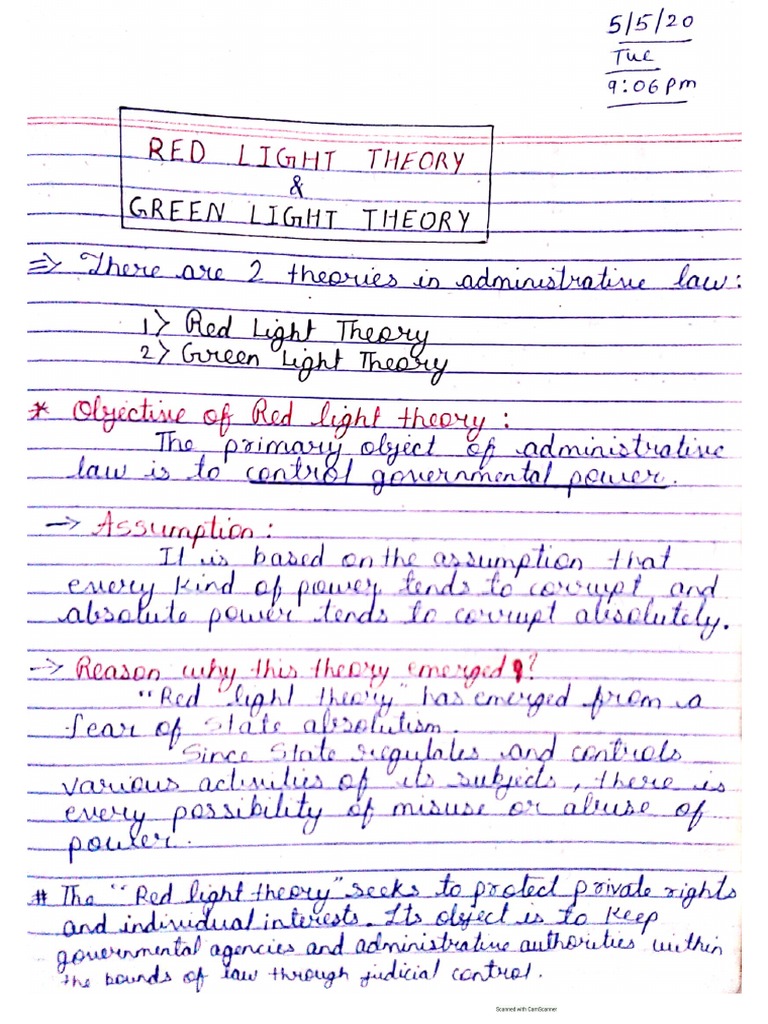 5/5/20
Tue
9:06pm
RED LIGHT THEORY
&
GREEN LIGHT THEORY
=> There are 2 theories in administrative law:
1> Red Light Theory
2> Green Light Theory
* Objective of Red light theory:
The primary object of administrative
law is to control governmental power.
-> Assumption:
It is based on the assumption that
every kind of power tends to corrupt and
absolute power tends to corrupt absolutely.
-> Reason why this theory emerged?
"Red light theory" has emerged from a
fear of State absolutism.
Since State regulates and controls
various activities of its subjects, there is
every possibility of misuse or abuse of
power.
# The "Red light theory" seeks to protect private rights
and individual interests. Its object is to keep
governmental agencies and administrative authorities within
the bounds of law through judicial control.
Scanned with CamScanner